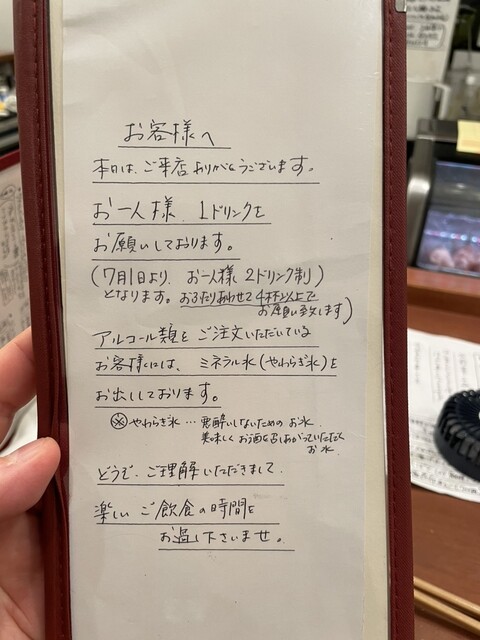 お客様へ
本日は、ご来店ありがとうございます。
お一人様、1ドリンクを
お願いしております。
(7月1日より、お一人様、2ドリンク制)
となります。おふたりあわせて4杯以上で
お願い致します)
アルコール類をご注文いただいている
お客様には、ミネラル水(やわらぎ水)を
お出ししております。
※やわらぎ水…悪酔いしないためのお水
美味しくお酒を召しあがっていただく
お水
どうぞ、ご理解いただきまして、
楽しいご飲食の時間を
お過し下さいませ。